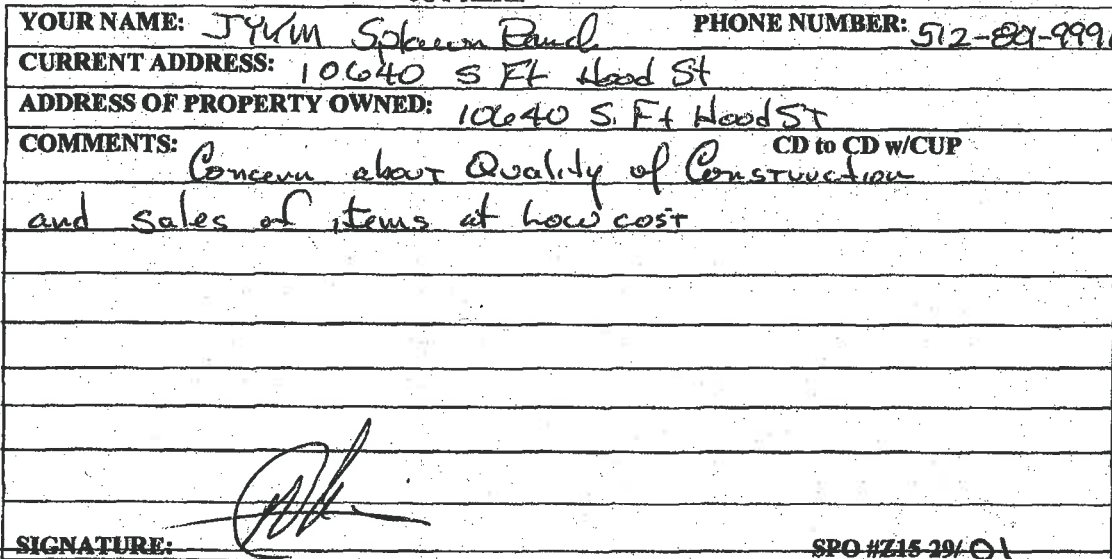 YOUR NAME: JYKM Splawn Ranch PHONE NUMBER: 512-801-9991
CURRENT ADDRESS: 10640 S Ft Hood St
ADDRESS OF PROPERTY OWNED: 10640 S. Ft Hood ST
COMMENTS: CD to CD w/CUP
Concern about Quality of Construction
and sales of items at Low cost
SIGNATURE: SPO #Z15-29/ 01